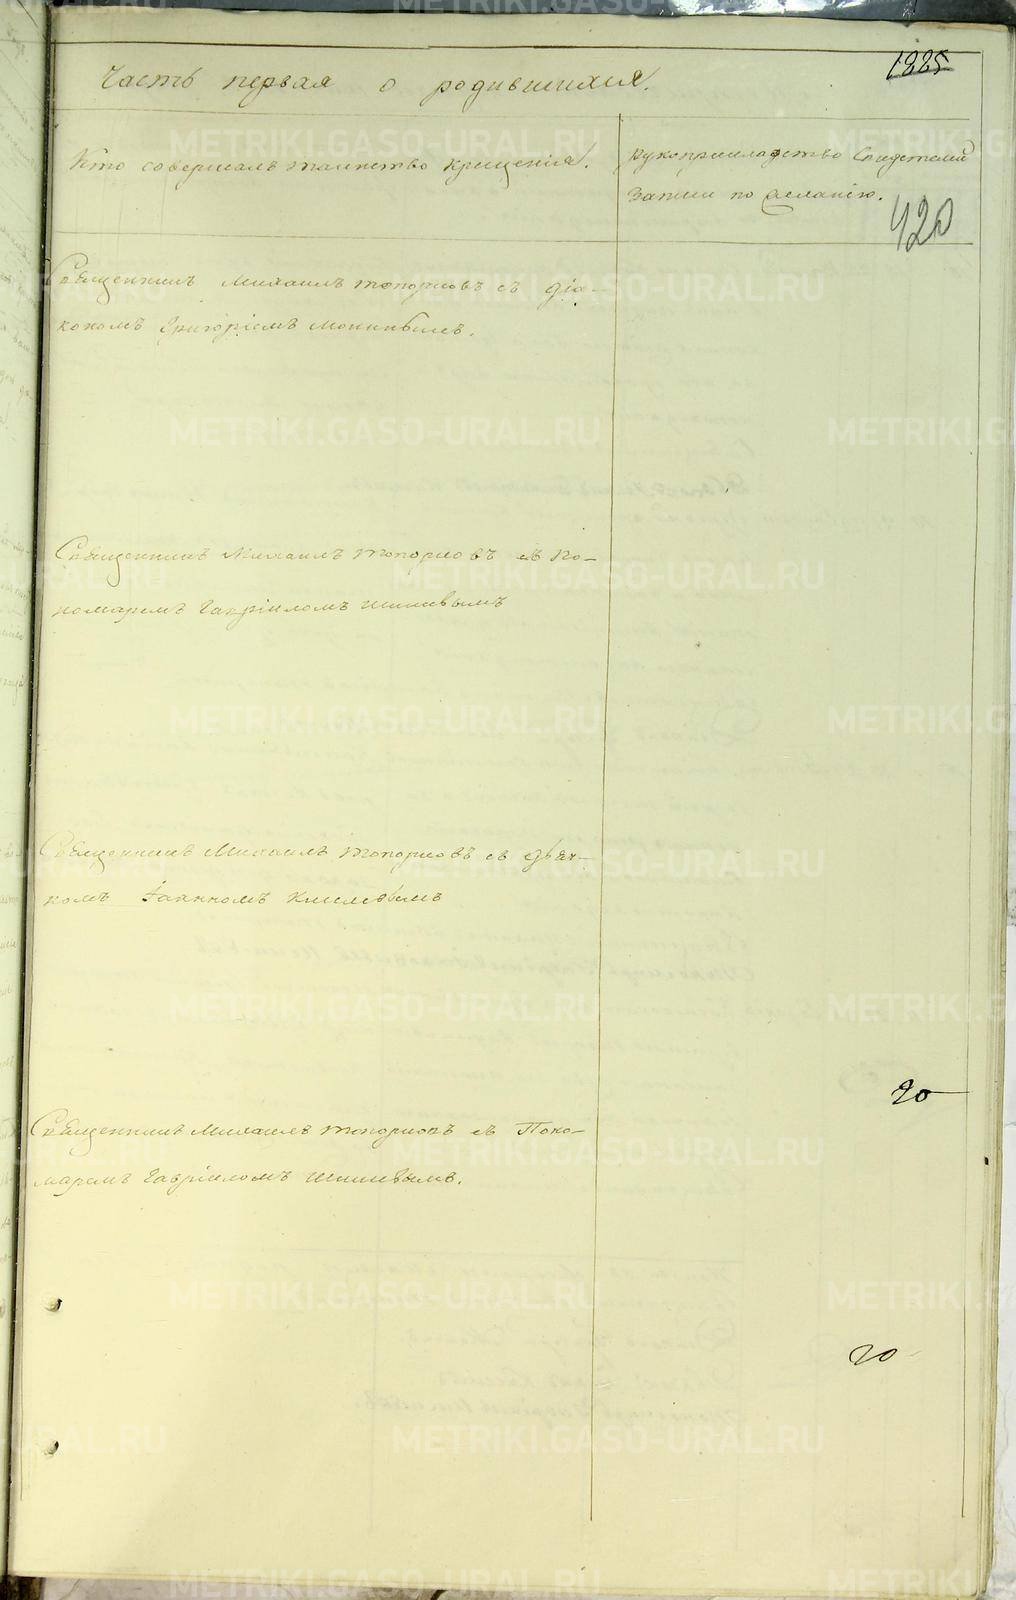 1885
Часть первая о родившихся.
Кто совершалъ таинство крещенія.
рукоприкладство Свидетелей
Записи по желанію.
420
Священникъ Михаилъ Топорковъ съ діа-
кономъ Григоріемъ
Священникъ Михаилъ Топорковъ съ По-
номаремъ Гавріиломъ Шишевымъ
Священникъ Михаилъ Топорковъ съ дьяч-
комъ Іоанномъ
20
Священникъ Михаилъ Топорковъ съ Поно-
маремъ Гавріиломъ Шишевымъ.
20
METRIKI.GASO-URAL.RU